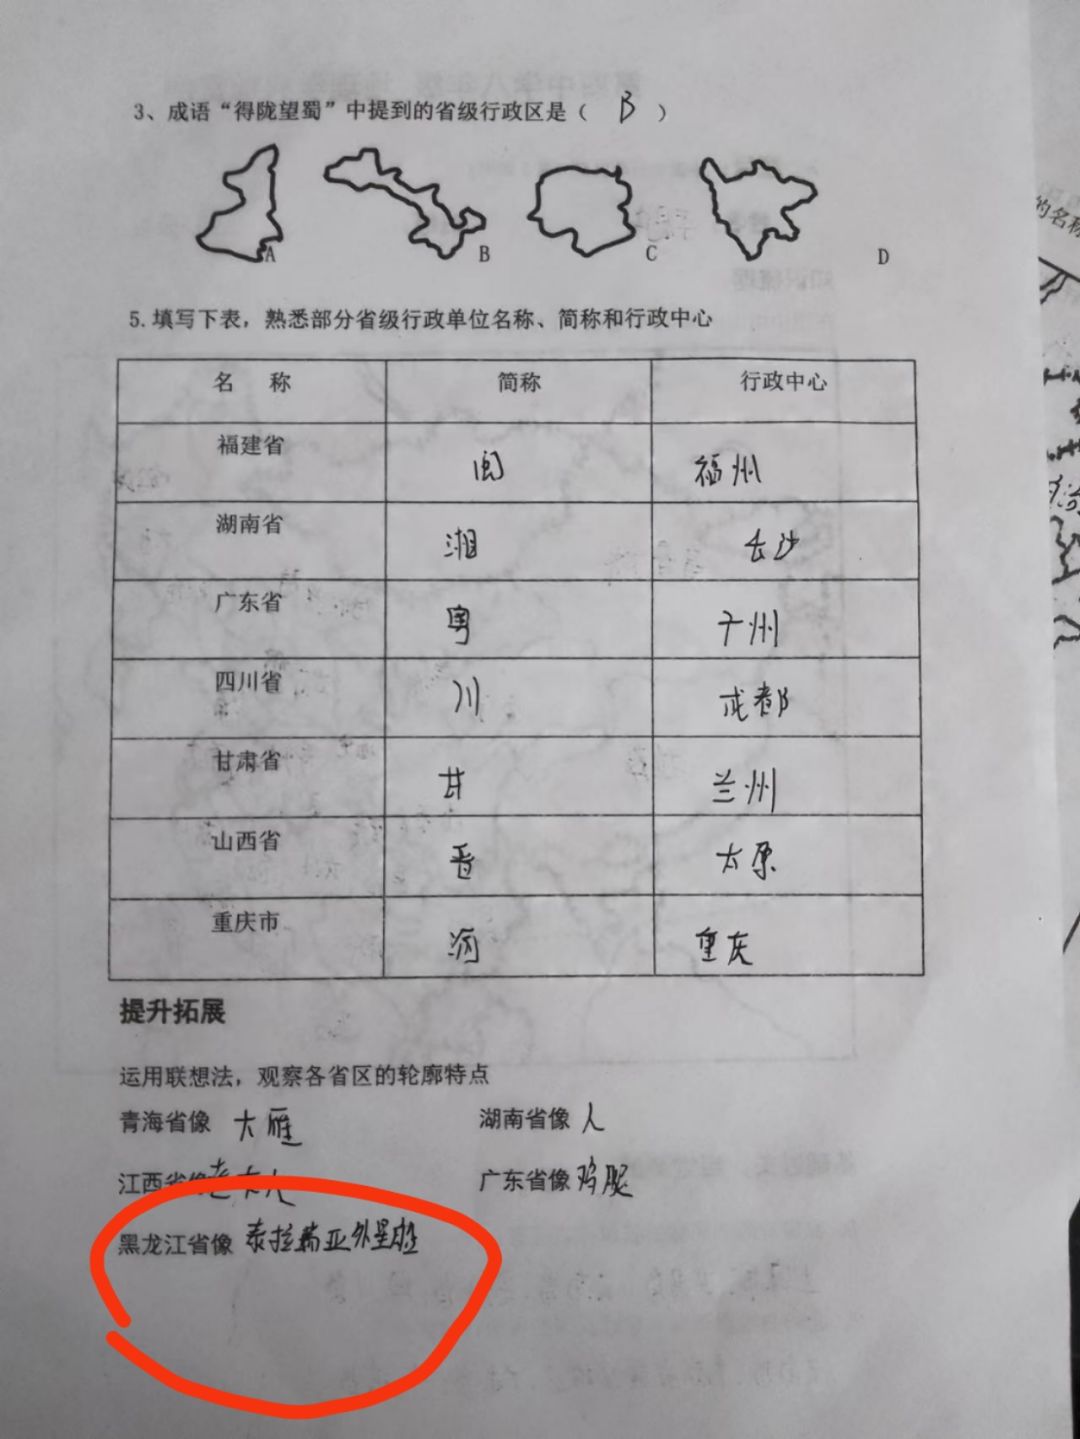 3、成语“得陇望蜀”中提到的省级行政区是（ B ）
A B C D
5.填写下表，熟悉部分省级行政单位名称、简称和行政中心
名 称 简称 行政中心
福建省 闽 福州
湖南省 湘 长沙
广东省 粤 广州
四川省 川 成都
甘肃省 甘 兰州
山西省 晋 太原
重庆市 重庆
提升拓展
运用联想法，观察各省区的轮廓特点
青海省像 大雁 湖南省像 人
江西省像老大人 广东省像 鸡腿
黑龙江省像 泰拉瑞亚外星蛆
的名称